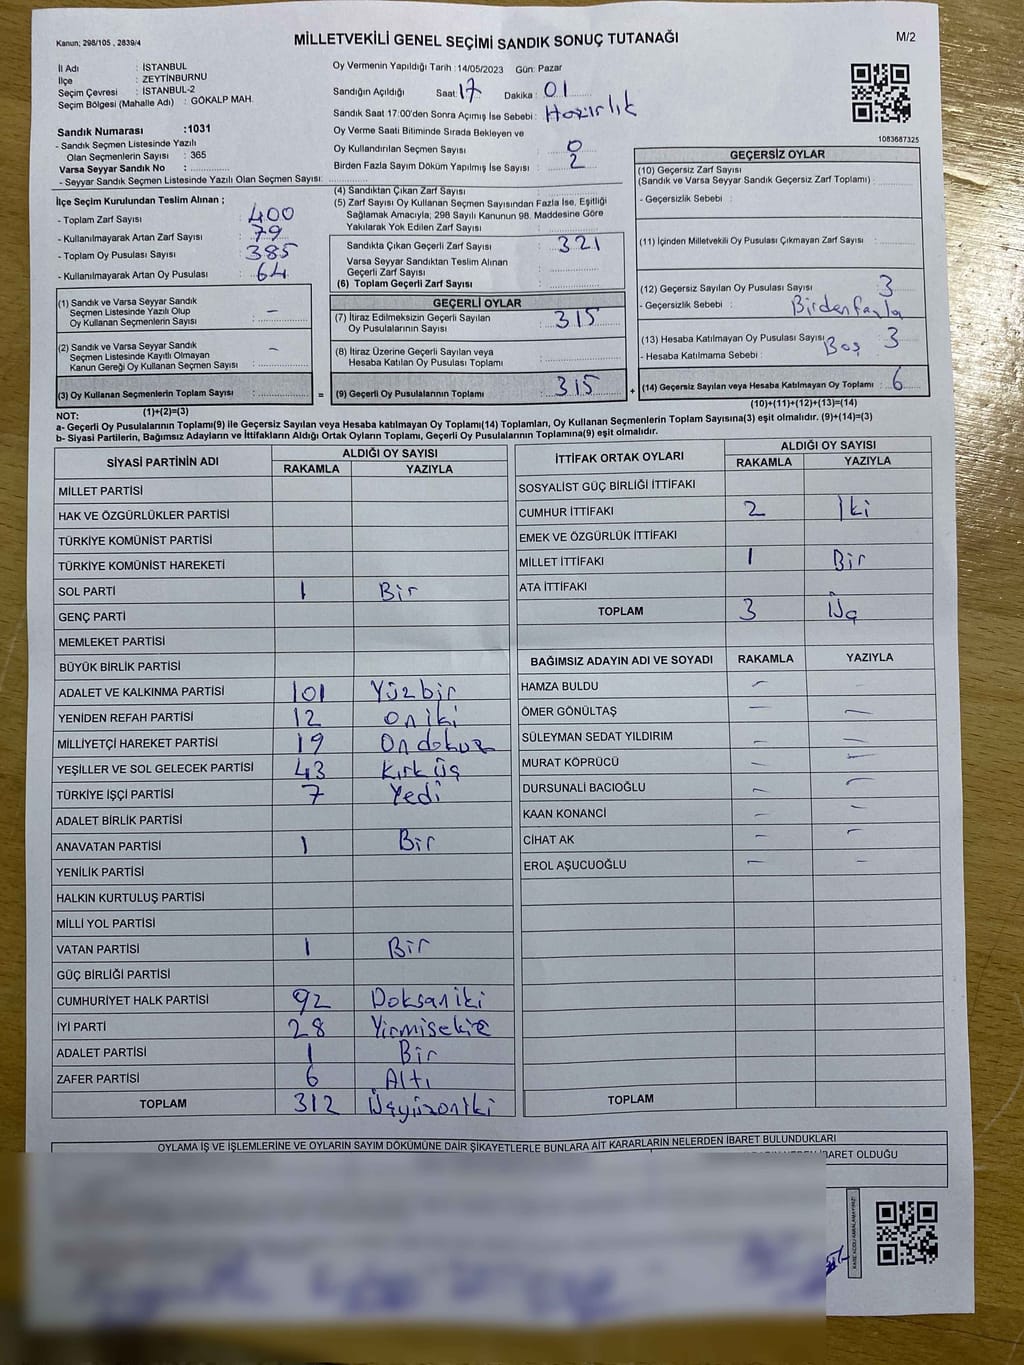 Kanun; 298/105 , 2839/4
MİLLETVEKİLİ GENEL SEÇİMİ SANDIK SONUÇ TUTANAĞI
M/2
İl Adı : İSTANBUL
İlçe : ZEYTİNBURNU
Seçim Çevresi : İSTANBUL-2
Seçim Bölgesi (Mahalle Adı) : GÖKALP MAH.
Sandık Numarası :1031
- Sandık Seçmen Listesinde Yazılı
Olan Seçmenlerin Sayısı : 365
Varsa Seyyar Sandık No :
- Seyyar Sandık Seçmen Listesinde Yazılı Olan Seçmen Sayısı:
Oy Vermenin Yapıldığı Tarih :14/05/2023 Gün: Pazar
Sandığın Açıldığı Saat: 17 Dakika : 01
Sandık Saat 17:00'den Sonra Açımış İse Sebebi : Hazırlık
Oy Verme Saati Bitiminde Sırada Bekleyen ve
Oy Kullandırılan Seçmen Sayısı : 0
Birden Fazla Sayım Döküm Yapılmış İse Sayısı : 2
1083687325
İlçe Seçim Kurulundan Teslim Alınan ;
- Toplam Zarf Sayısı : 400
- Kullanılmayarak Artan Zarf Sayısı : 79
- Toplam Oy Pusulası Sayısı : 385
- Kullanılmayarak Artan Oy Pusulası : 64
(1) Sandık ve Varsa Seyyar Sandık
Seçmen Listesinde Yazılı Olup
Oy Kullanan Seçmenlerin Sayısı : -
(2) Sandık ve Varsa Seyyar Sandık
Seçmen Listesinde Kayıtlı Olmayan
Kanun Gereği Oy Kullanan Seçmen Sayısı : -
(3) Oy Kullanan Seçmenlerin Toplam Sayısı :
(1)+(2)=(3)
(4) Sandıktan Çıkan Zarf Sayısı :
(5) Zarf Sayısı Oy Kullanan Seçmen Sayısından Fazla İse, Eşitliği
Sağlamak Amacıyla; 298 Sayılı Kanunun 98. Maddesine Göre
Yakılarak Yok Edilen Zarf Sayısı :
Sandıkta Çıkan Geçerli Zarf Sayısı : 321
Varsa Seyyar Sandıktan Teslim Alınan
Geçerli Zarf Sayısı :
(6) Toplam Geçerli Zarf Sayısı :
GEÇERLİ OYLAR
(7) İtiraz Edilmeksizin Geçerli Sayılan
Oy Pusulalarının Sayısı : 315
(8) İtiraz Üzerine Geçerli Sayılan veya
Hesaba Katılan Oy Pusulası Toplamı :
= (9) Geçerli Oy Pusulalarının Toplamı : 315 +
GEÇERSİZ OYLAR
(10) Geçersiz Zarf Sayısı
(Sandık ve Varsa Seyyar Sandık Geçersiz Zarf Toplamı) :
- Geçersizlik Sebebi :
(11) İçinden Milletvekili Oy Pusulası Çıkmayan Zarf Sayısı :
(12) Geçersiz Sayılan Oy Pusulası Sayısı : 3
- Geçersizlik Sebebi : Birden fazla
(13) Hesaba Katılmayan Oy Pusulası Sayısı : 3
- Hesaba Katılmama Sebebi : Boş
(14) Geçersiz Sayılan veya Hesaba Katılmayan Oy Toplamı : 6
(10)+(11)+(12)+(13)=(14)
NOT:
a- Geçerli Oy Pusulalarının Toplamı(9) ile Geçersiz Sayılan veya Hesaba katılmayan Oy Toplamı(14) Toplamları, Oy Kullanan Seçmenlerin Toplam Sayısına(3) eşit olmalıdır. (9)+(14)=(3)
b- Siyasi Partilerin, Bağımsız Adayların ve İttifakların Aldığı Ortak Oyların Toplamı, Geçerli Oy Pusulalarının Toplamına(9) eşit olmalıdır.
SİYASİ PARTİNİN ADI ALDIĞI OY SAYISI
RAKAMLA YAZIYLA
MİLLET PARTİSİ
HAK VE ÖZGÜRLÜKLER PARTİSİ
TÜRKİYE KOMÜNİST PARTİSİ
TÜRKİYE KOMÜNİST HAREKETİ
SOL PARTİ 1 Bir
GENÇ PARTİ
MEMLEKET PARTİSİ
BÜYÜK BİRLİK PARTİSİ
ADALET VE KALKINMA PARTİSİ 101 Yüzbir
YENİDEN REFAH PARTİSİ 12 oniki
MİLLİYETÇİ HAREKET PARTİSİ 19 Ondokuz
YEŞİLLER VE SOL GELECEK PARTİSİ 43 Kırküç
TÜRKİYE İŞÇİ PARTİSİ 7 Yedi
ADALET BİRLİK PARTİSİ
ANAVATAN PARTİSİ 1 Bir
YENİLİK PARTİSİ
HALKIN KURTULUŞ PARTİSİ
MİLLİ YOL PARTİSİ
VATAN PARTİSİ 1 Bir
GÜÇ BİRLİĞİ PARTİSİ
CUMHURİYET HALK PARTİSİ 92 Doksaniki
İYİ PARTİ 28 Yirmisekiz
ADALET PARTİSİ 1 Bir
ZAFER PARTİSİ 6 Altı
TOPLAM 312 Üçyüzoniki
İTTİFAK ORTAK OYLARI ALDIĞI OY SAYISI
RAKAMLA YAZIYLA
SOSYALİST GÜÇ BİRLİĞİ İTTİFAKI
CUMHUR İTTİFAKI 2 İki
EMEK VE ÖZGÜRLÜK İTTİFAKI
MİLLET İTTİFAKI 1 Bir
ATA İTTİFAKI
TOPLAM 3 Üç
BAĞIMSIZ ADAYIN ADI VE SOYADI RAKAMLA YAZIYLA
HAMZA BULDU -
ÖMER GÖNÜLTAŞ - -
SÜLEYMAN SEDAT YILDIRIM - -
MURAT KÖPRÜCÜ - -
DURSUNALİ BACIOĞLU - -
KAAN KONANCİ - -
CİHAT AK - -
EROL AŞUCUOĞLU - -
TOPLAM
OYLAMA İŞ VE İŞLEMLERİNE VE OYLARIN SAYIM DÖKÜMÜNE DAİR ŞİKAYETLERLE BUNLARA AİT KARARLARIN NELERDEN İBARET BULUNDUKLARI
İBARET OLDUĞU